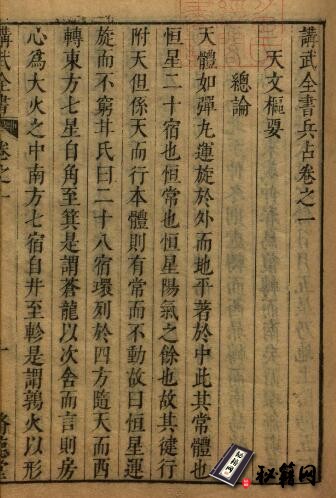 講武全書兵占卷之一
天文樞要
總論
天體如彈丸運旋於外而地平著於中此其常體也
恒星二十宿也恒常也恒星陽氣之餘也故其徤行
附天但係天而行本體則有常而不動故曰恒星運
旋而不窮甘氏曰二十八宿環列於四方隨天而西
轉東方七星自角至箕是謂蒼龍以次舍而言則房
心爲大火之中南方七宿自井至軫是謂鶉火以形
講武全書 卷之一 一
秘籍网
秘籍网